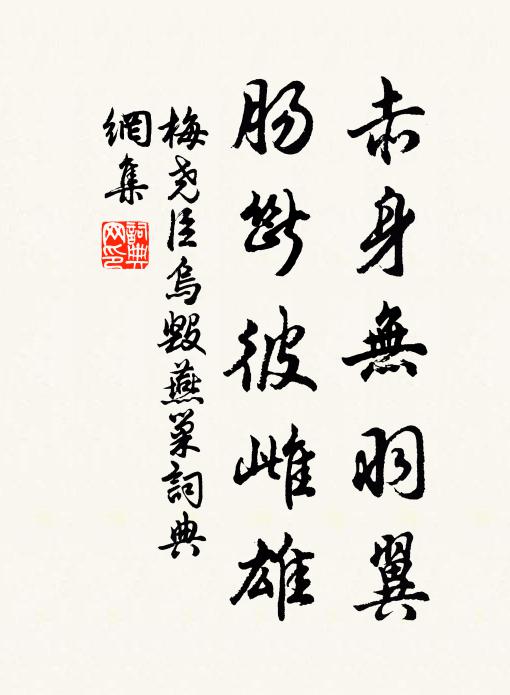 赤身無羽翼
腸斷彼雌雄
梅堯臣烏毀燕巢詞典
網集
詞典网印